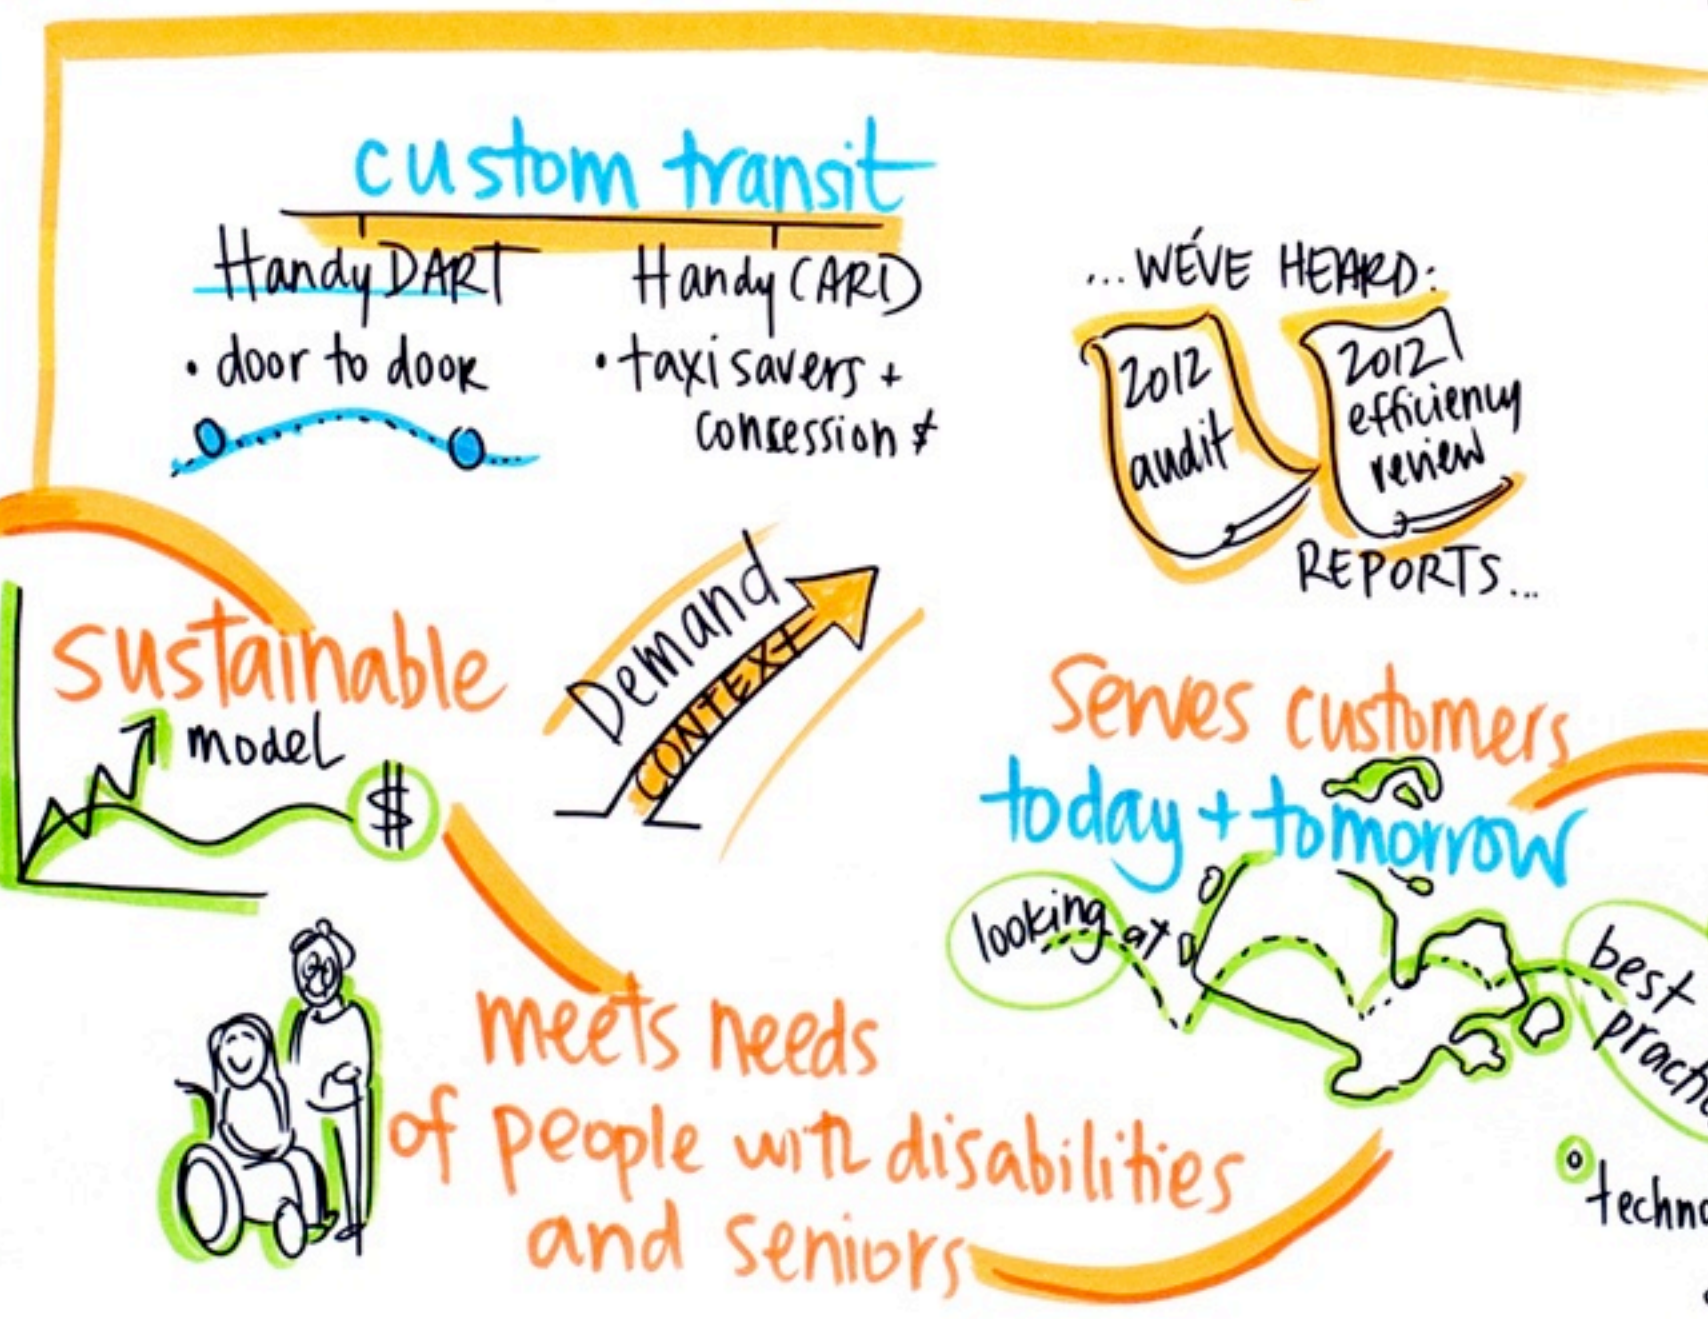 custom transit
HandyDART
• door to door
HandyCARD
• taxi savers +
concession $
...WE'VE HEARD:
2012
audit
2012
efficiency
review
REPORTS...
sustainable
model
$
Demand
CONTEXT
Serves customers
today + tomorrow
looking at
best
meets needs
of people with disabilities
and seniors